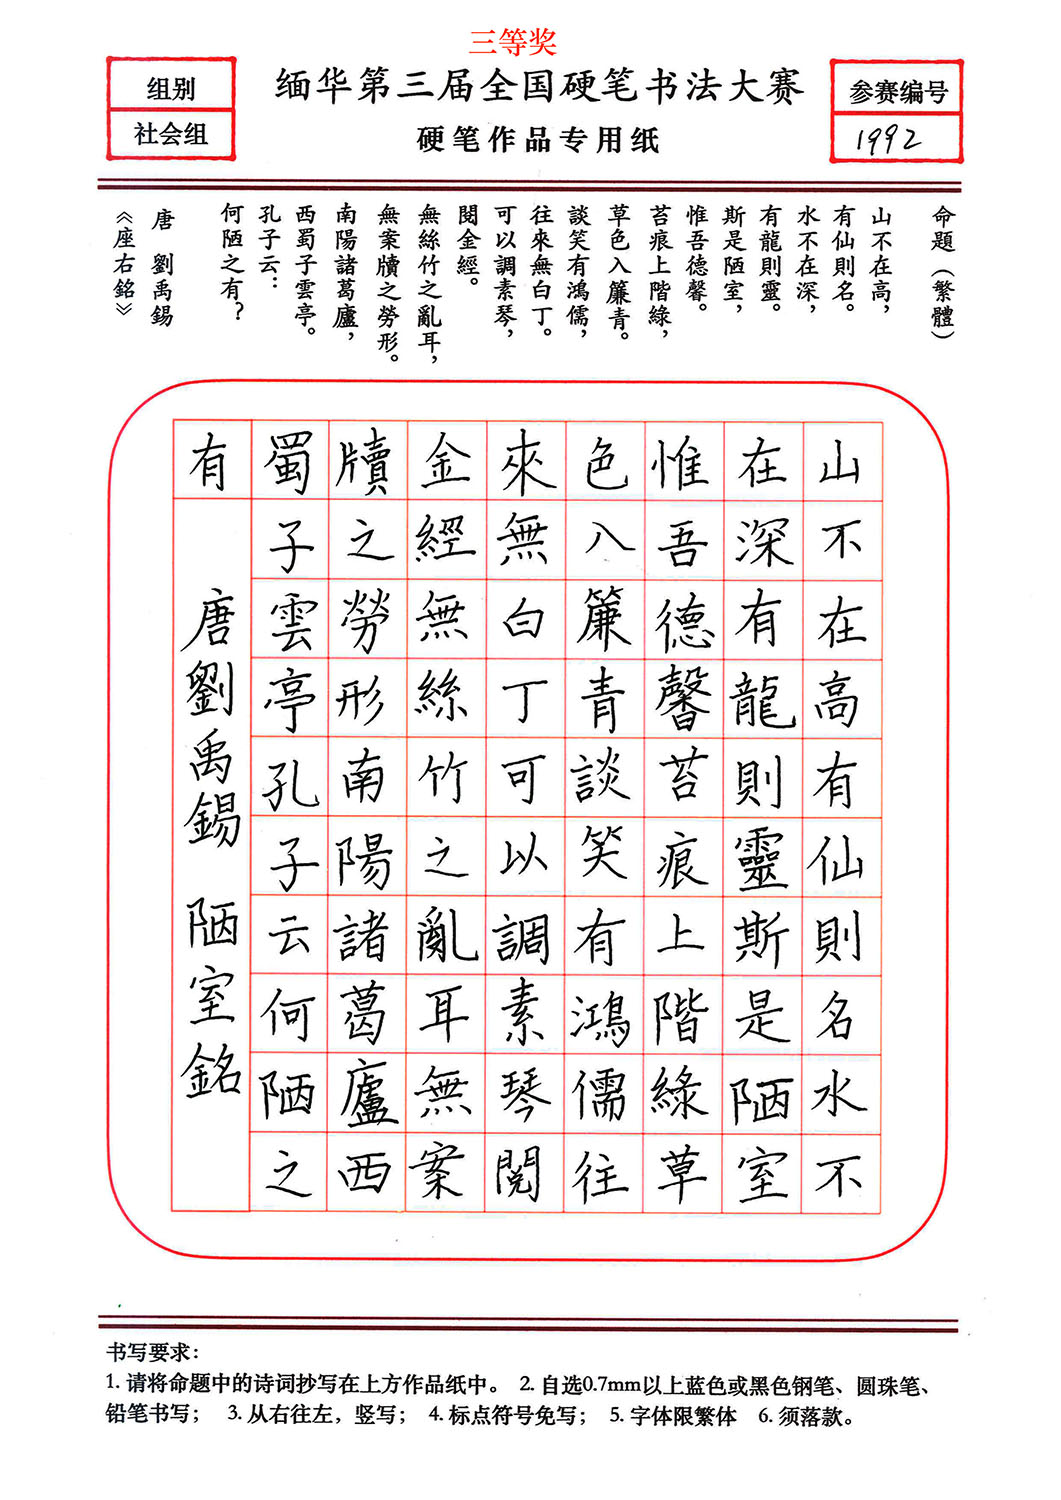 三等奖
组别
社会组
缅华第三届全国硬笔书法大赛
硬笔作品专用纸
参赛编号
1992
命題（繁體）
山不在高，
有仙則名。
水不在深，
有龍則靈。
斯是陋室，
惟吾德馨。
苔痕上階綠，
草色入簾青。
談笑有鴻儒，
往來無白丁。
可以調素琴，
閱金經。
無絲竹之亂耳，
無案牘之勞形。
南陽諸葛廬，
西蜀子雲亭。
孔子云：
何陋之有？
唐 劉禹錫
《座右銘》
山不在高有仙則名水不
在深有龍則靈斯是陋室
惟吾德馨苔痕上階綠草
色入簾青談笑有鴻儒往
來無白丁可以調素琴閱
金經無絲竹之亂耳無案
牘之勞形南陽諸葛廬西
蜀子雲亭孔子云何陋之
有
唐劉禹錫 陋室銘
书写要求：
1. 请将命题中的诗词抄写在上方作品纸中。 2. 自选0.7mm以上蓝色或黑色钢笔、圆珠笔、
铅笔书写； 3. 从右往左，竖写； 4. 标点符号免写； 5. 字体限繁体 6. 须落款。